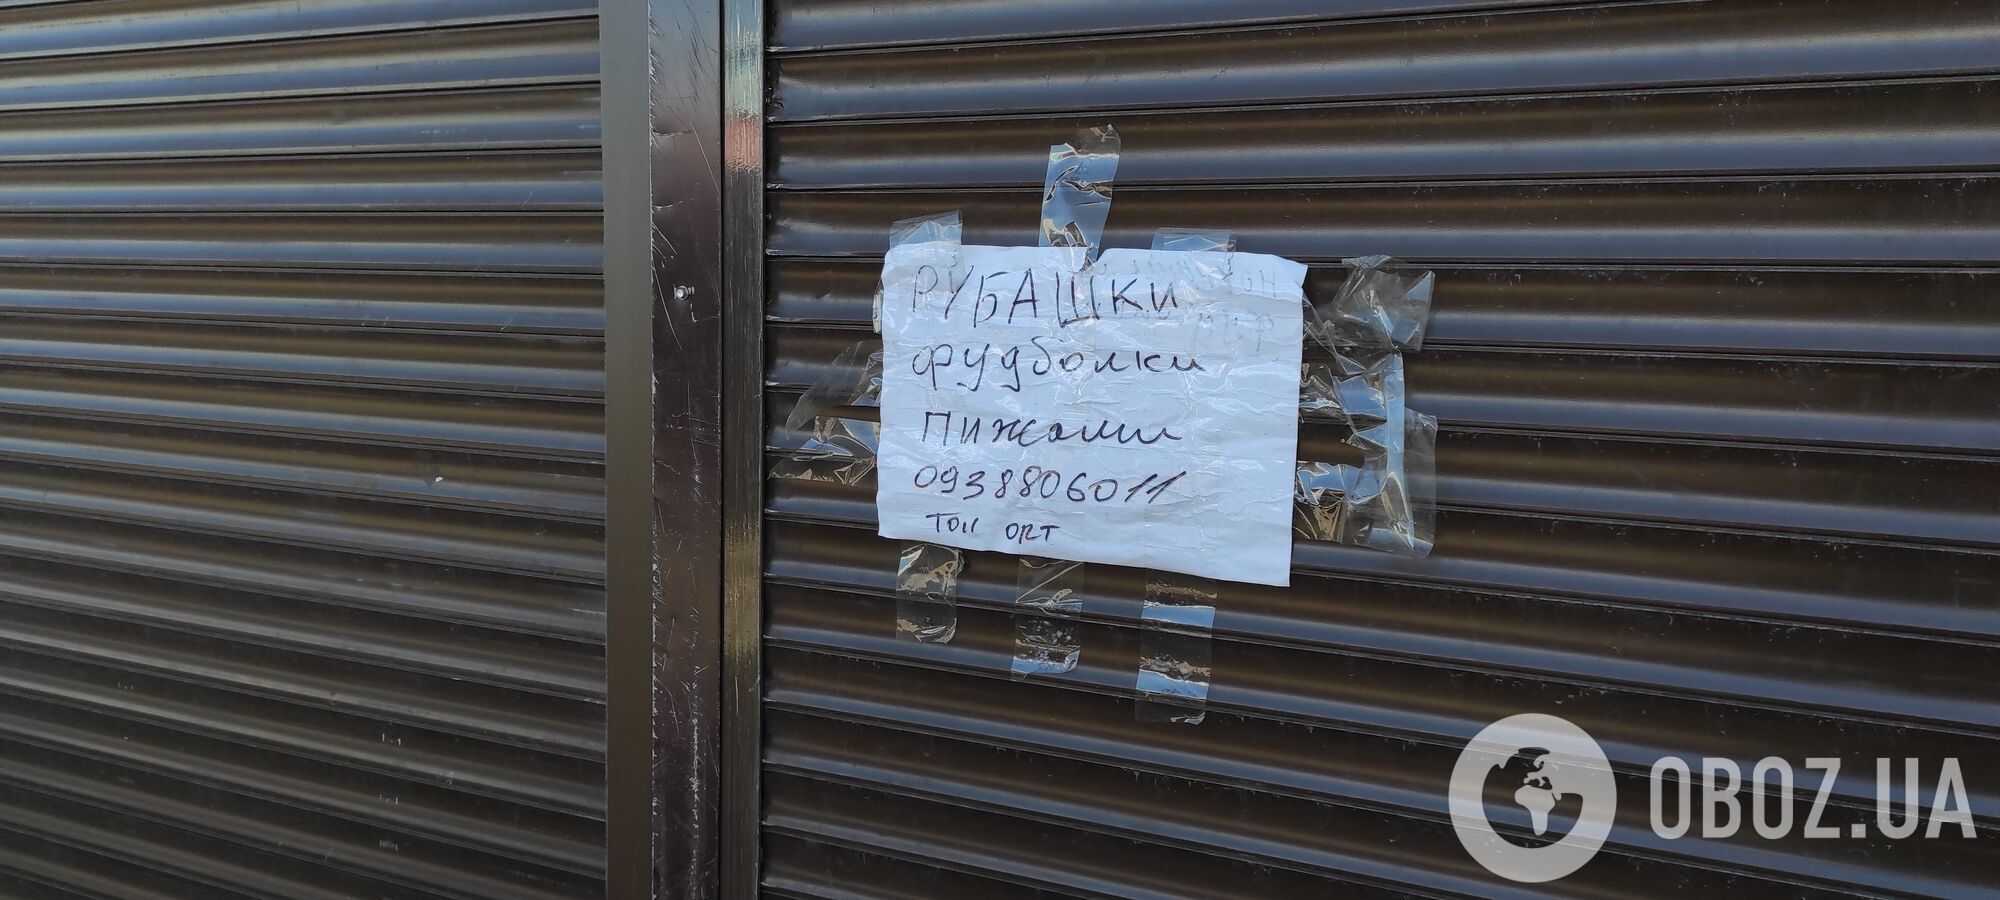 РУБАШКИ
фудболки
Пижами
0938806011
Топ ОПТ
OBOZ.UA